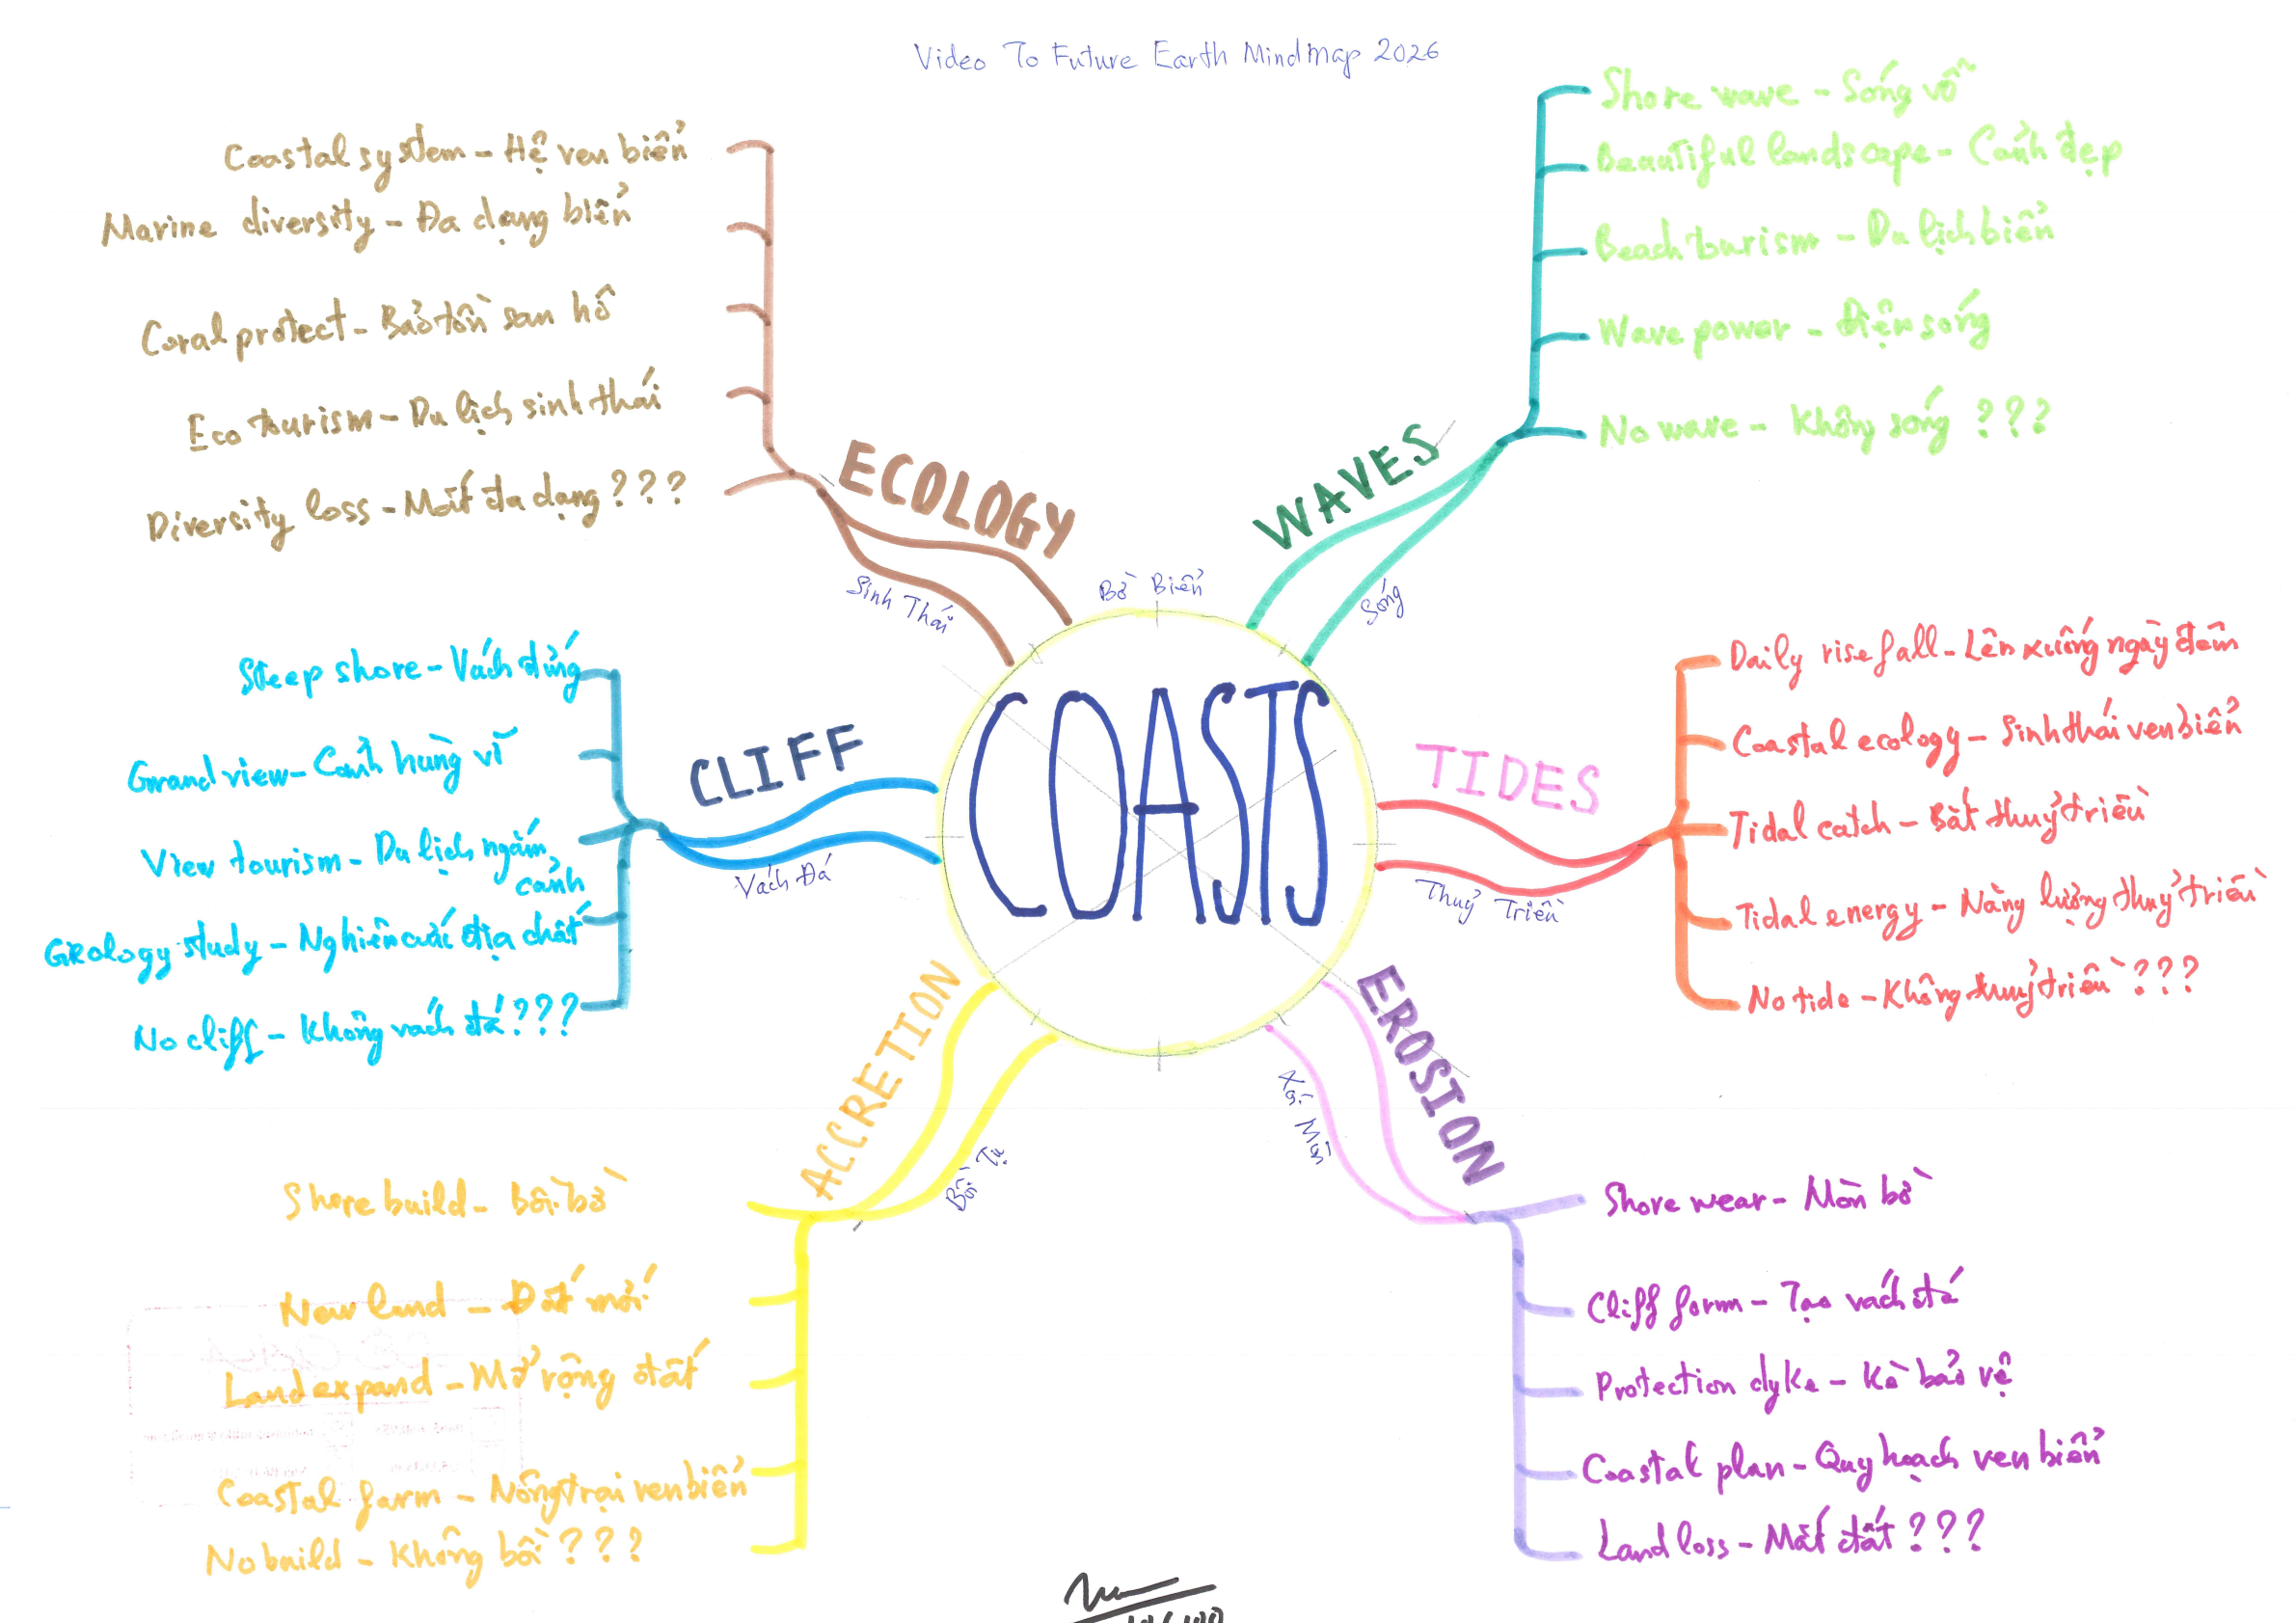 Video To Future Earth Mindmap 2026
COASTS
Bờ Biển
WAVES
Sóng
Shore wave - Sóng vỗ
Beautiful landscape - Cảnh đẹp
Beach tourism - Du lịch biển
Wave power - Điện sóng
No wave - Không sóng ???
TIDES
Thuỷ Triều
Daily rise fall - Lên xuống ngày đêm
Coastal ecology - Sinh thái ven biển
Tidal catch - Bắt thuỷ triều
Tidal energy - Năng lượng thuỷ triều
No tide - Không thuỷ triều ???
EROSION
Xói Mòn
Shore wear - Mòn bờ
Cliff form - Tạo vách đá
Protection dyke - Kè bảo vệ
Coastal plan - Quy hoạch ven biển
Land loss - Mất đất ???
ACCRETION
Bồi Tụ
Shore build - Bồi bờ
New land - Đất mới
Land expand - Mở rộng đất
Coastal farm - Nông trại ven biển
No build - Không bồi ???
CLIFF
Vách Đá
Steep shore - Vách đứng
Grand view - Cảnh hùng vĩ
View tourism - Du lịch ngắm
cảnh
Geology study - Nghiên cứu địa chất
No cliff - Không vách đá ???
ECOLOGY
Sinh Thái
Coastal system - Hệ ven biển
Marine diversity - Đa dạng biển
Coral protect - Bảo tồn san hô
Eco tourism - Du lịch sinh thái
Diversity loss - Mất đa dạng ???